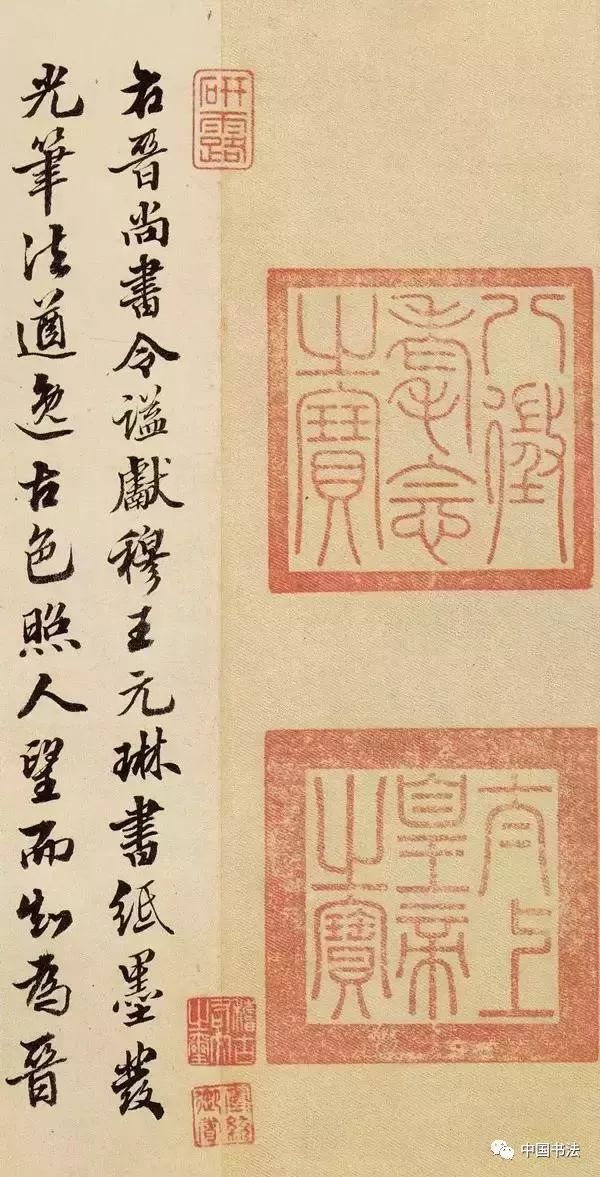 八徵
耄念
之寶
太上
皇帝
之寶
研露
右晉尚書令謚獻穆王元琳書紙墨發
光筆法遒逸古色照人望而知為晉
中国书法